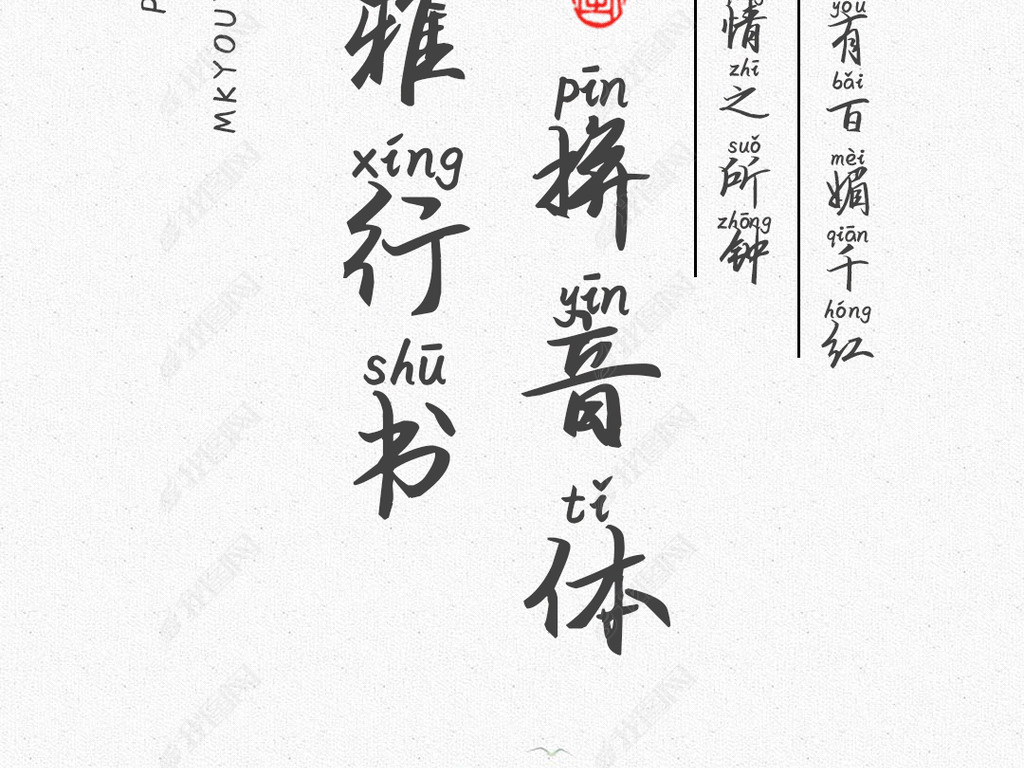 yǒu 有 bǎi 百 mèi 媚 qiān 千 hóng 红
情 zhī 之 suǒ 所 zhōng 钟
pīn 拼 yīn 音 tǐ 体
雅 xíng 行 shū 书
MKYOU